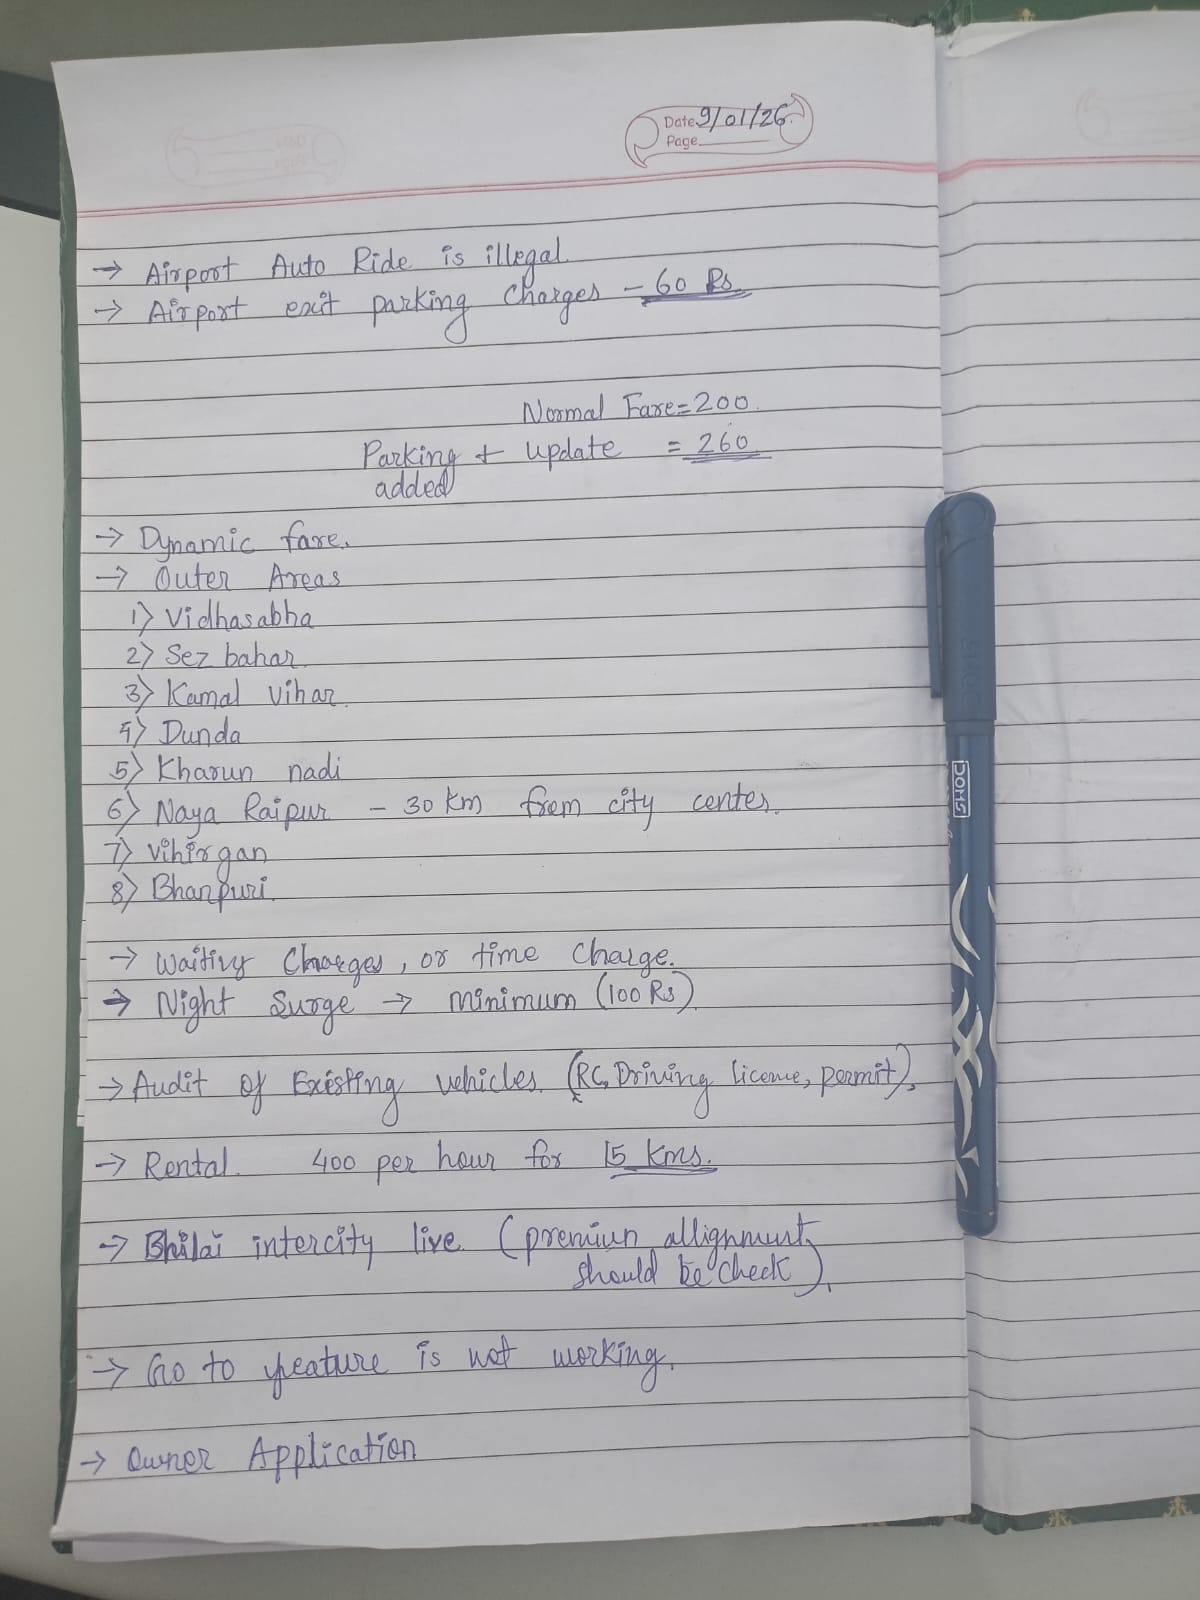 Date 9/01/26
Page
→ Airport Auto Ride is illegal.
→ Airport exit parking Charges - 60 Rs
Normal Fare = 200.
Parking + Update = 260
added
→ Dynamic fare.
→ Outer Areas
1) Vidhasabha
2) Sez bahar.
3) Kamal Vihar.
4) Dunda
5) Kharun nadi
6) Naya Raipur - 30 Km from city center.
7) Vihirgan
8) Bhanpuri.
→ Waitivy Charges, or time Charge.
→ Night Surge → Minimum (100 Rs)
→ Audit of Existing vehicles. (RC, Driving license, permit).
→ Rental. 400 per hour for 15 kms.
→ Bhilai intercity live. (premiun allignment
should be check).
→ Go to feature is not working.
→ Owner Application
DOMS